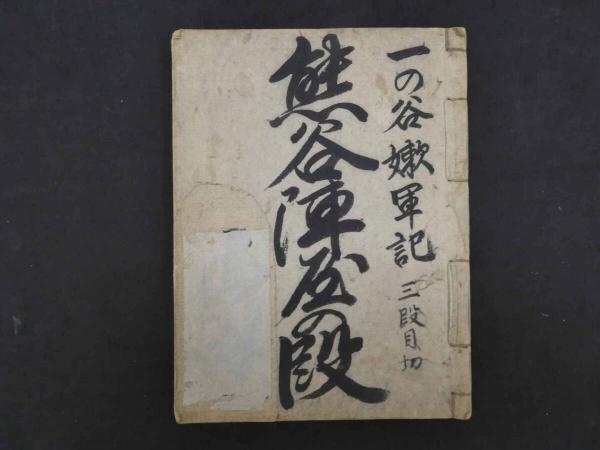 一の谷嫩軍記 三段目切
熊谷陣屋の段